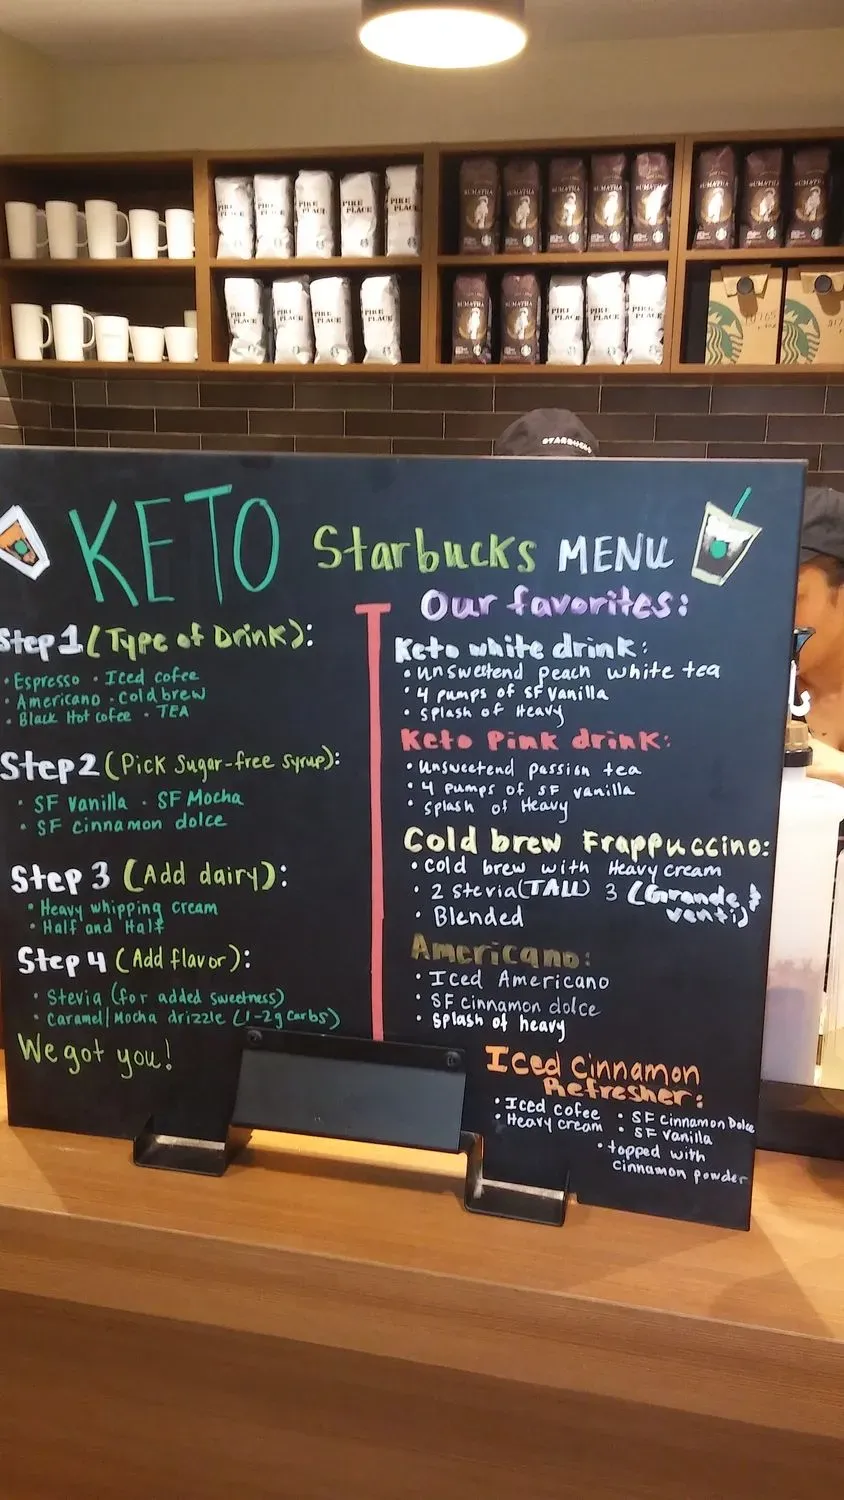 PIKE PLACE
PIKE PLACE
PIKE PLACE
PIKE PLACE
PIKE PLACE
SUMATRA
SUMATRA
SUMATRA
SUMATRA
SUMATRA
SUMATRA
SUMATRA
SUMATRA
PIKE PLACE
PIKE PLACE
PIKE PLACE
PIKE PLACE
SUMATRA
SUMATRA
PIKE PLACE
PIKE PLACE
PIKE PLACE
STARBUCKS
KETO Starbucks MENU
Step 1 (Type of Drink):
• Espresso • Iced cofee
• Americano • Cold brew
• Black Hot cofee • TEA
Step 2 (Pick Sugar-free syrup):
• SF Vanilla • SF Mocha
• SF cinnamon dolce
Step 3 (Add dairy):
• Heavy whipping cream
• Half and Half
Step 4 (Add flavor):
• Stevia (for added sweetness)
• Caramel/Mocha drizzle (1-2g carbs)
We got you!
Our favorites:
Keto white drink:
• unsweetend peach white tea
• 4 pumps of SF Vanilla
• splash of Heavy
Keto Pink drink:
• unsweetend passion tea
• 4 pumps of SF vanilla
• splash of Heavy
Cold brew Frappuccino:
• Cold brew with Heavy cream
• 2 Stevia (TALL) 3 (Grande &
venti)
• Blended
Americano:
• Iced Americano
• SF cinnamon dolce
• splash of heavy
Iced Cinnamon
Refresher:
• Iced cofee • SF Cinnamon Dolce
• Heavy cream • SF Vanilla
• topped with
cinnamon powder